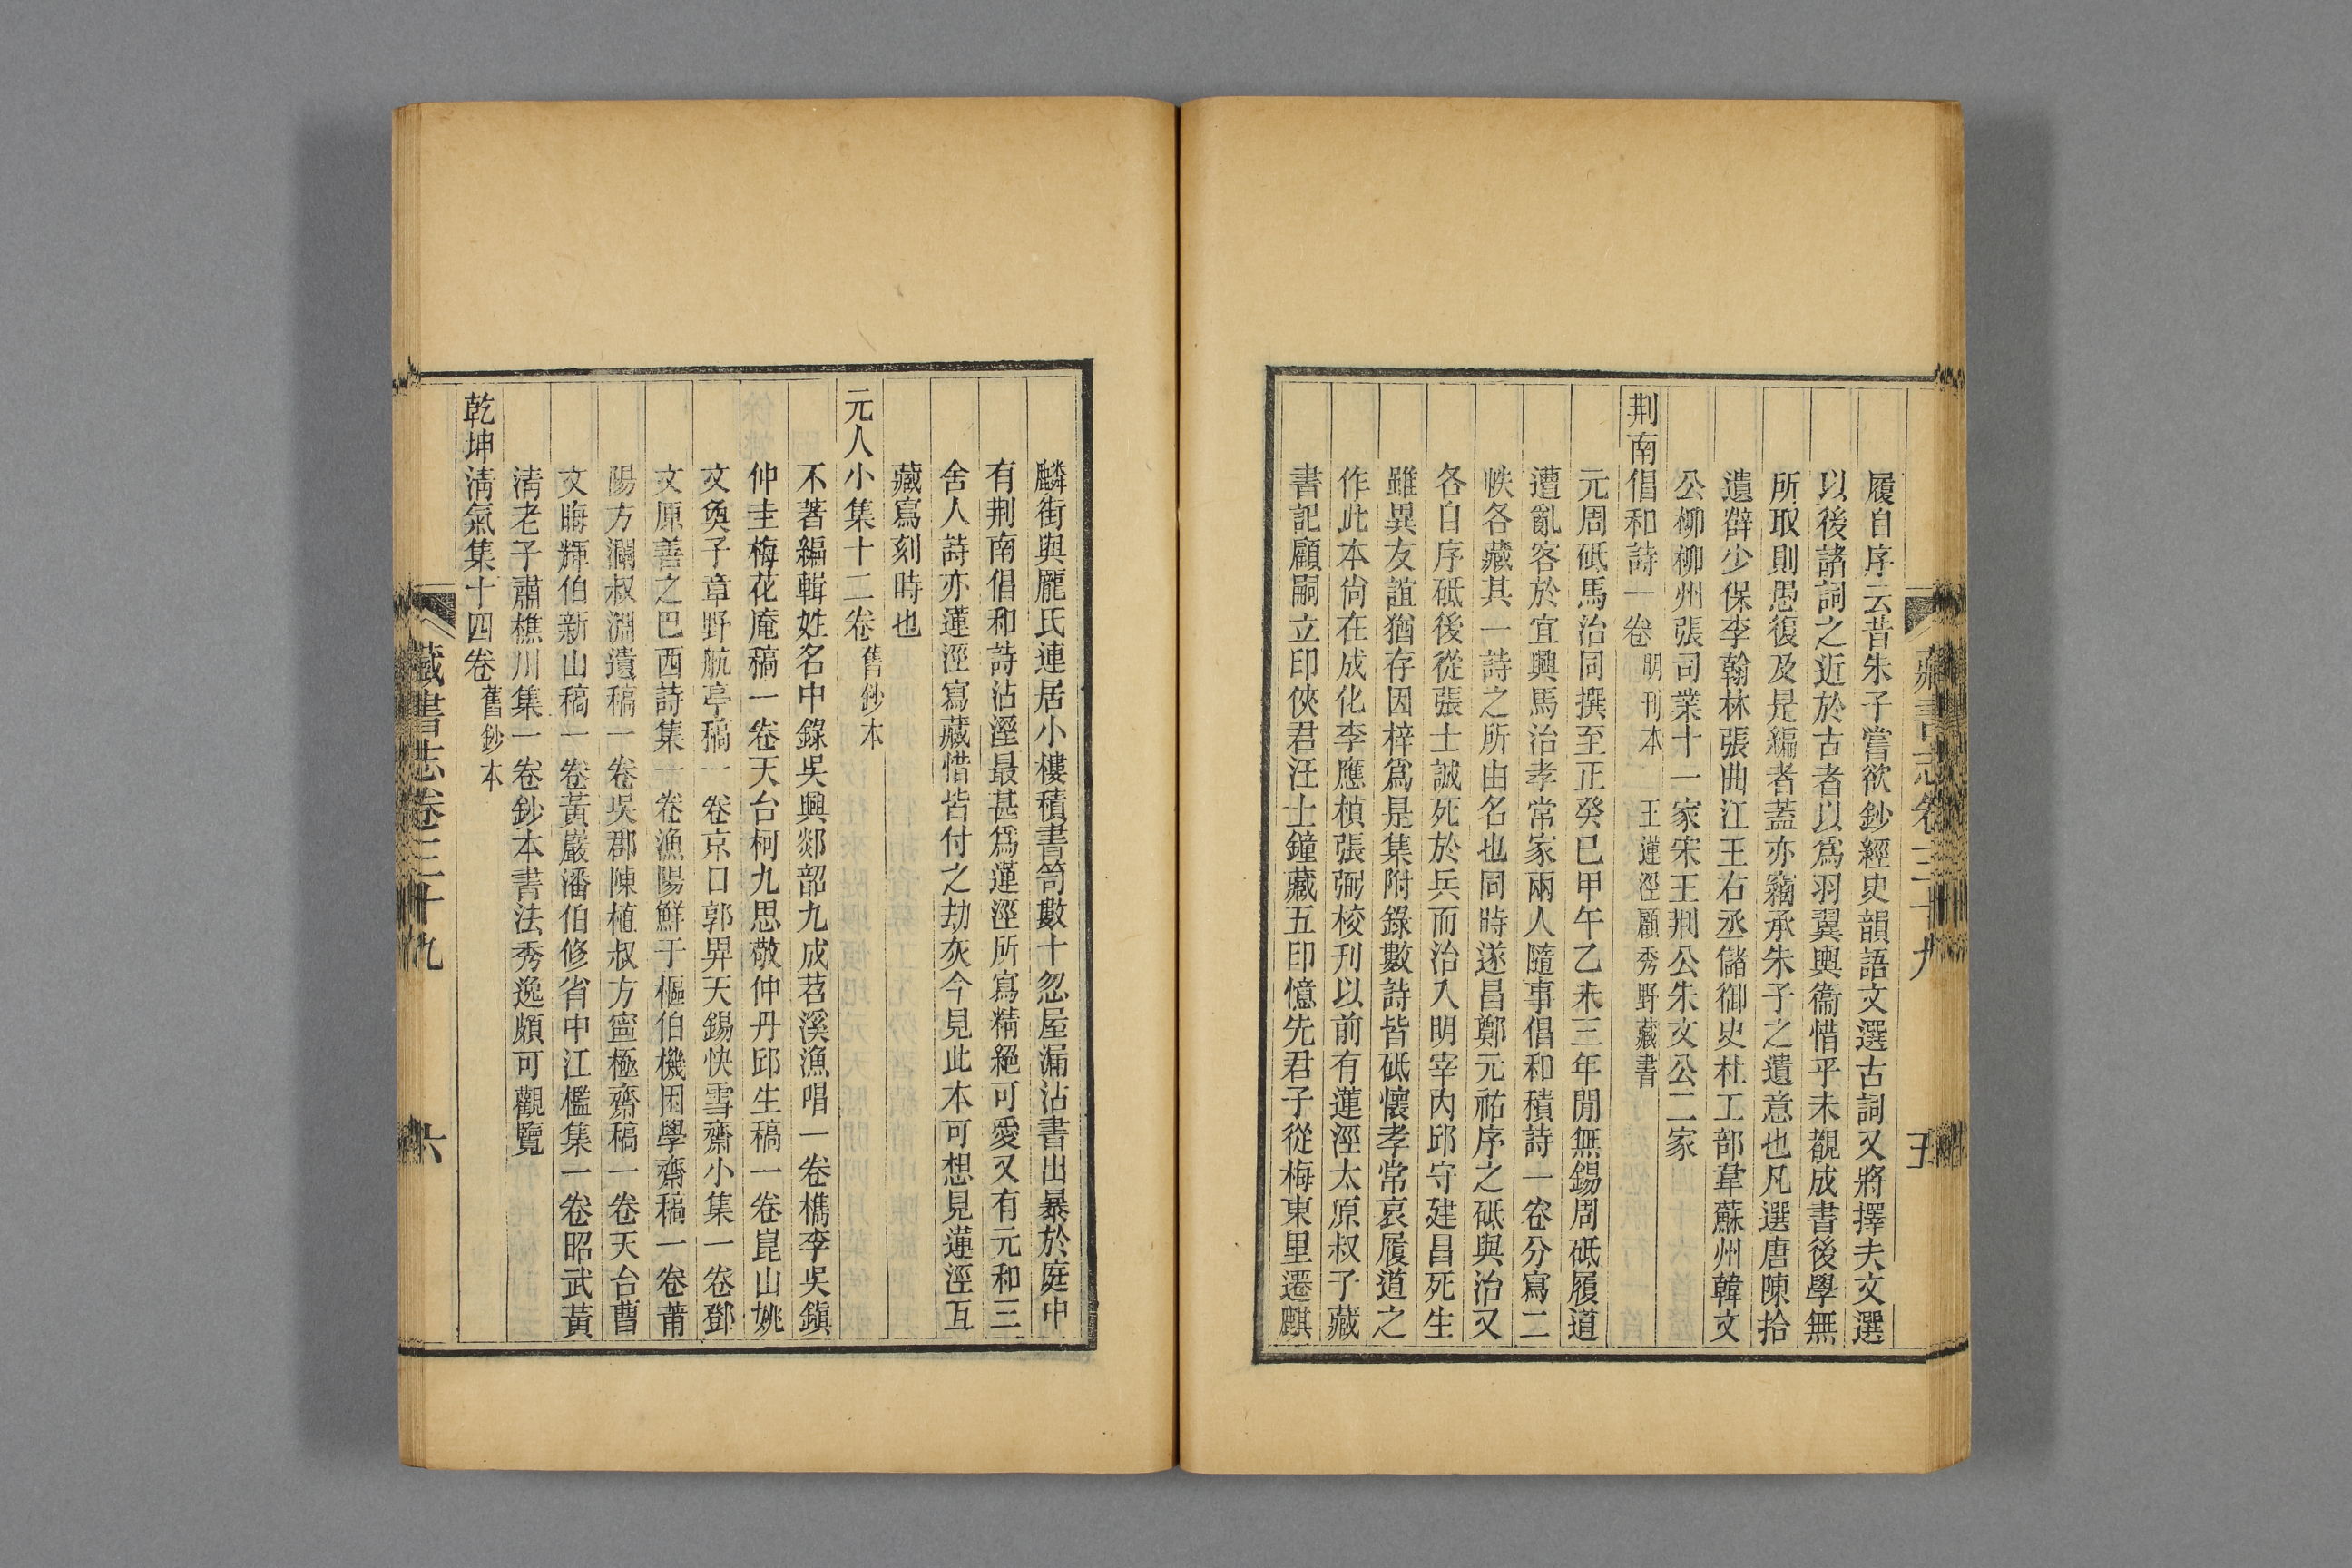 藏書志卷三十九
五
履自序云昔朱子嘗欲鈔經史韻語文選古詞又將擇夫文選
以後諸詞之近於古者以爲羽翼輿衞惜乎未覩成書後學無
所取則愚復及是編者蓋亦竊承朱子之遺意也凡選唐陳拾
遺薛少保李翰林張曲江王右丞儲御史杜工部韋蘇州韓文
公柳柳州張司業十一家宋王荆公朱文公二家
荆南倡和詩一卷 明刊本 王蓮涇顧秀野藏書
元周砥馬治同撰至正癸巳甲午乙未三年閒無錫周砥履道
遭亂客於宜興馬治孝常家兩人隨事倡和積詩一卷分寫二
帙各藏其一詩之所由名也同時遂昌鄭元祐序之砥與治又
各自序砥後從張士誠死於兵而治入明宰內邱守建昌死生
雖異友誼猶存因梓爲是集附錄數詩皆砥懷孝常哀履道之
作此本尙在成化李應楨張弼梭刊以前有蓮涇太原叔子藏
書記顧嗣立印俠君汪士鐘藏五印憶先君子從梅東里遷麒
麟街與龐氏連居小樓積書笥數十忽屋漏沾書出暴於庭中
有荆南倡和詩沾溼最甚爲蓮涇所寫精絕可愛又有元和三
舍人詩亦蓮涇寫藏惜皆付之劫灰今見此本可想見蓮涇互
藏寫刻時也
元人小集十二卷 舊鈔本
不著編輯姓名中錄吳興郯韶九成苕溪漁唱一卷檇李吳鎭
仲圭梅花庵稿一卷天台柯九思敬仲丹邱生稿一卷崑山姚
文奐子章野航亭稿一卷京口郭畀天錫快雪齋小集一卷鄧
文原善之巴西詩集一卷漁陽鮮于樞伯機困學齋稿一卷莆
陽方瀾叔淵遺稿一卷吳郡陳植叔方寍極齋稿一卷天台曹
文晦輝伯新山稿一卷黃巖潘伯修省中江檻集一卷昭武黃
淸老子肅樵川集一卷鈔本書法秀逸頗可觀覽
乾坤淸氣集十四卷 舊鈔本
藏書志卷三十九
六